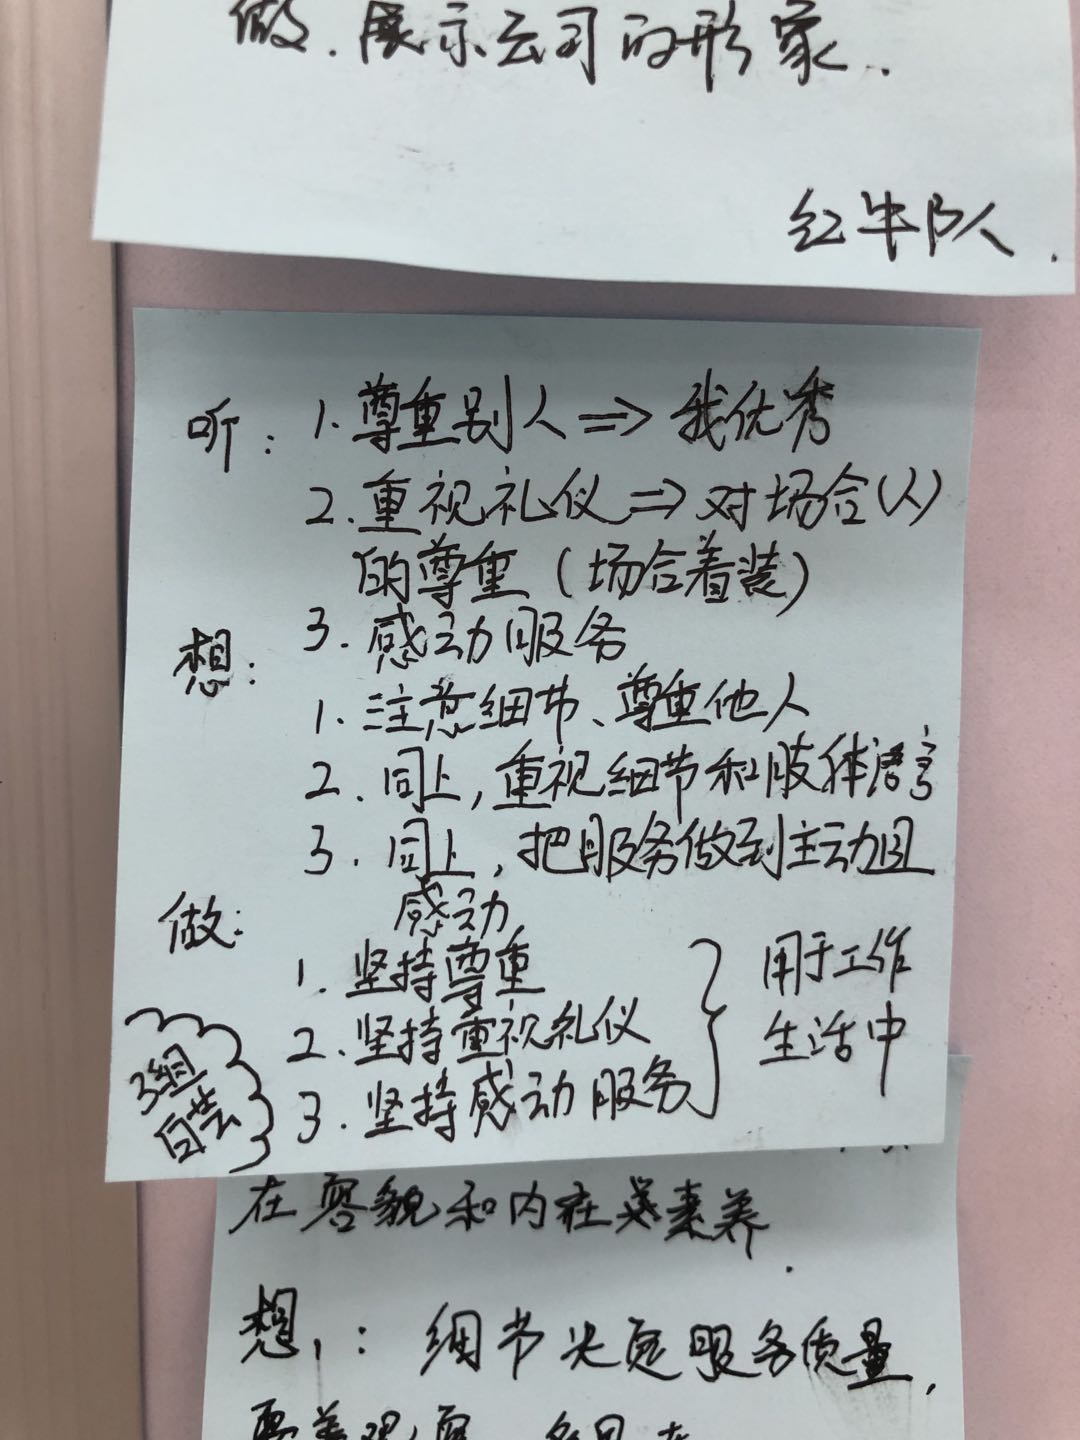 做.展示公司的形象..
红牛队人.
听: 1.尊重别人⇒我优秀
2.重视礼仪⇒对场合(人)
的尊重(场合着装)
3.感动服务
想:
1.注意细节、尊重他人
2.同上,重视细节和肢体语言
3.同上,把服务做到主动且
感动
做:
1.坚持尊重
2.坚持重视礼仪
3.坚持感动服务
用于工作
生活中
3组
白芸
在容貌和内在素养.
想1:细节决定服务质量,